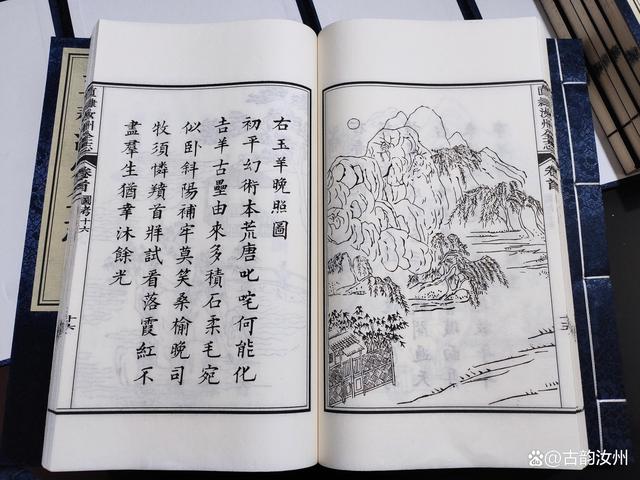 直隸汝州全志
卷首
右玉羊晚照圖
初平幻術本荒唐叱咤何能化
吉羊古壘由來多積石柔毛宛
似卧斜陽補牢莫笑桑榆晚司
牧須憐羵首牂試看落霞紅不
盡羣生猶幸沐餘光
直隸汝州全志
卷首
圖考十六
@古韵汝州